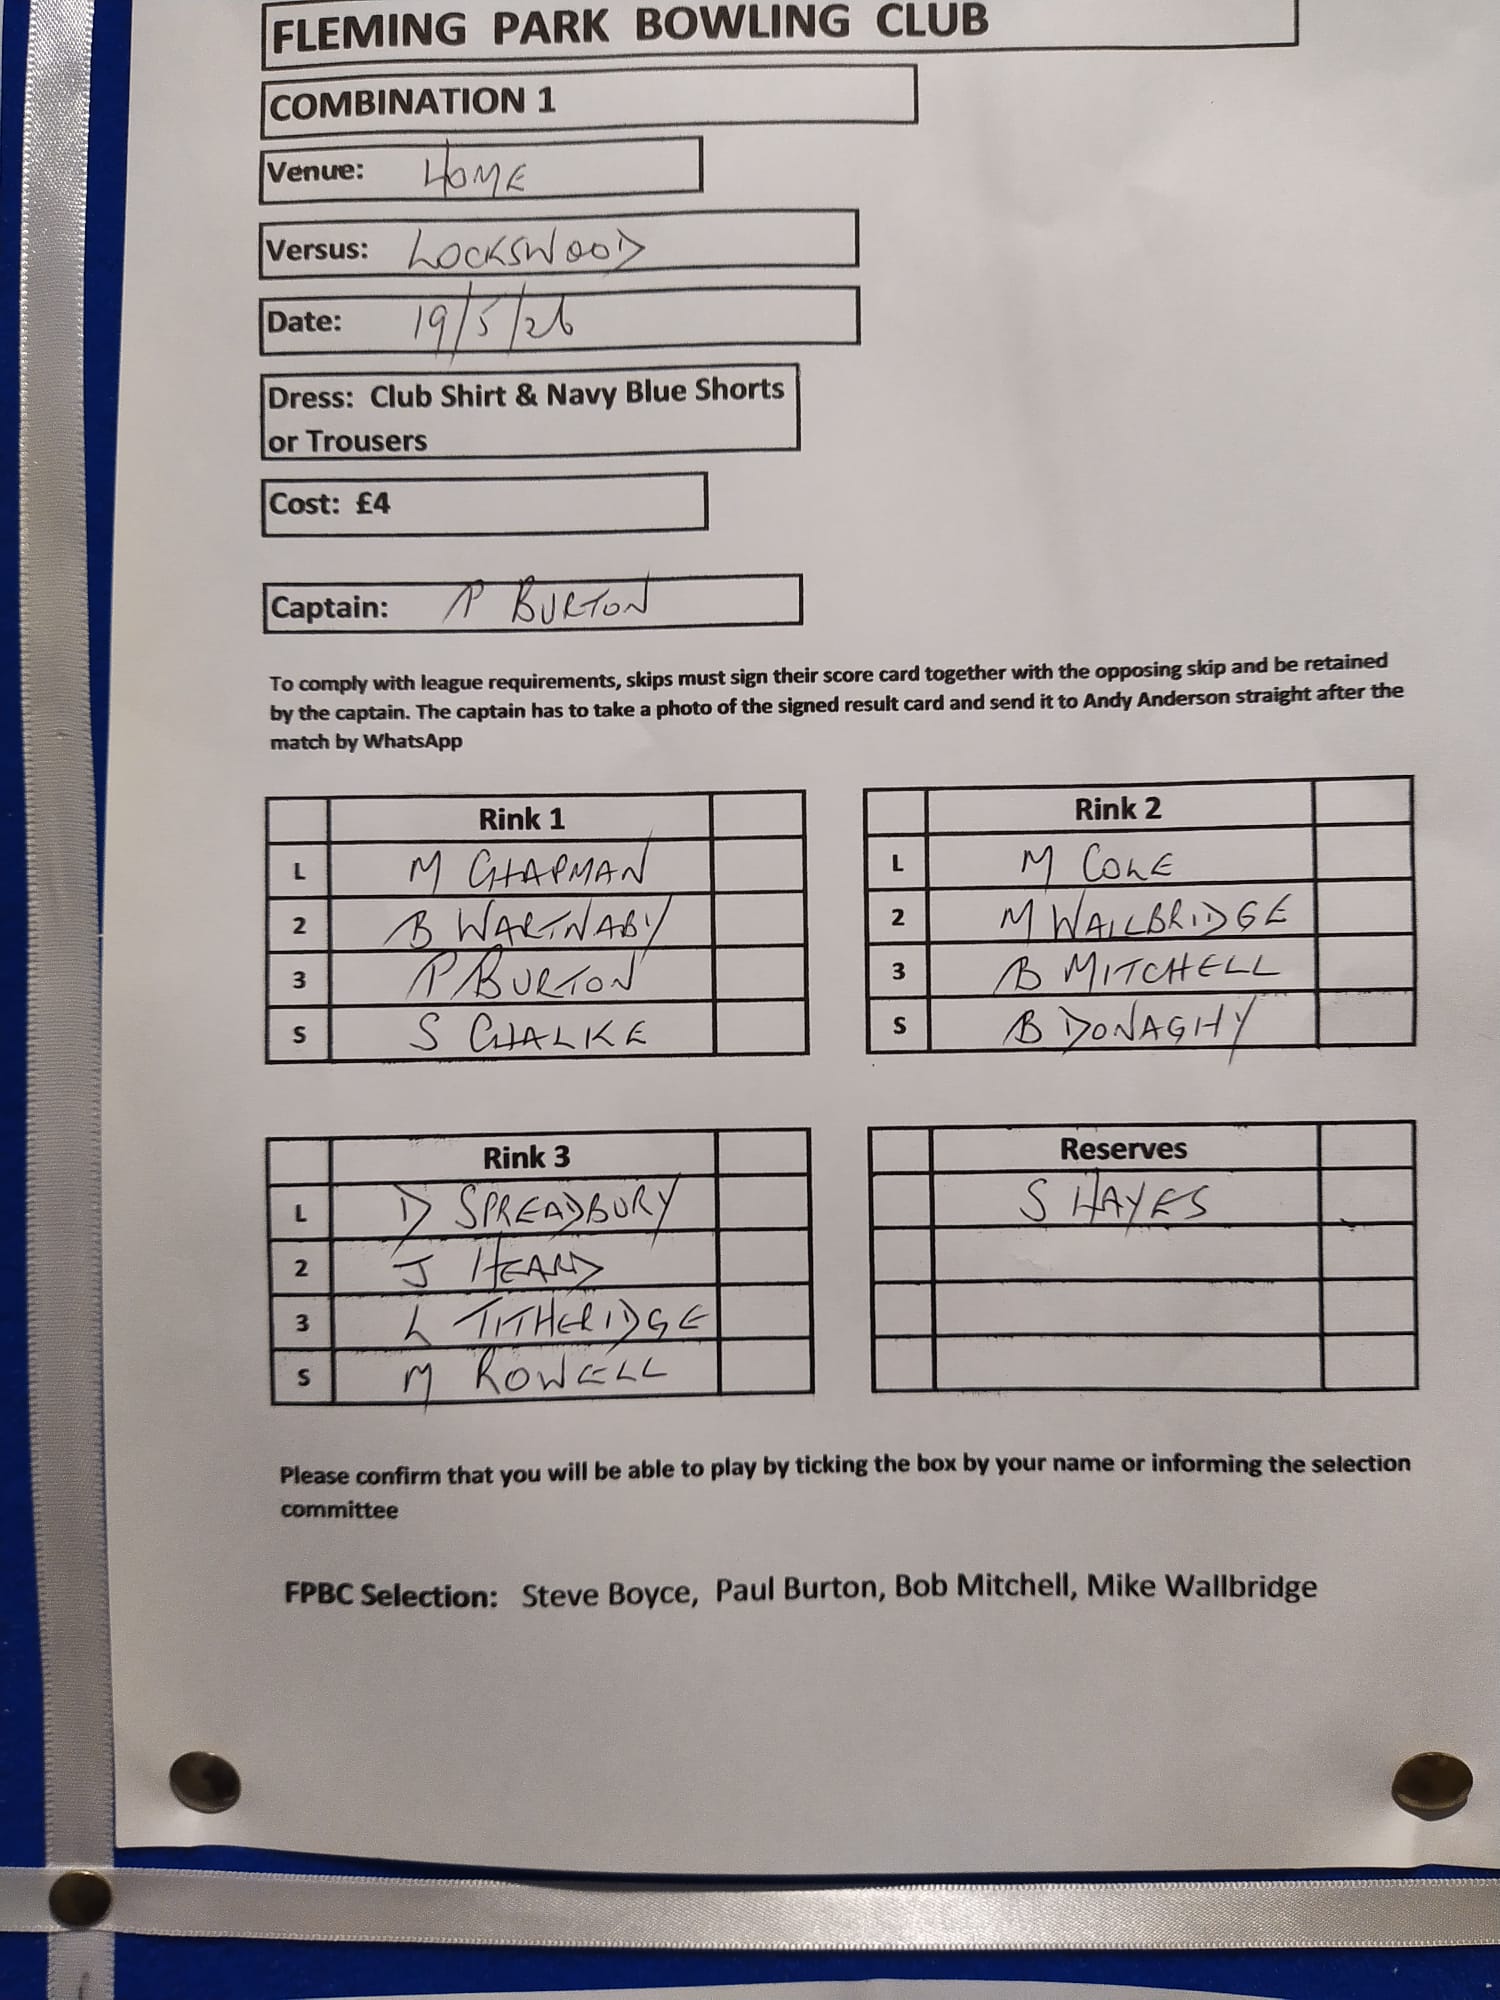 FLEMING PARK BOWLING CLUB
COMBINATION 1
Venue: HOME
Versus: LOCKSWOOD
Date: 19/5/26
Dress: Club Shirt & Navy Blue Shorts
or Trousers
Cost: £4
Captain: P BURTON
To comply with league requirements, skips must sign their score card together with the opposing skip and be retained
by the captain. The captain has to take a photo of the signed result card and send it to Andy Anderson straight after the
match by WhatsApp
Rink 1
L M CHAPMAN
2 B WARTNABY
3 P BURTON
S S CHALKE
Rink 2
L M COLE
2 M WALLBRIDGE
3 B MITCHELL
S B DONAGHY
Rink 3
L D SPREADBURY
2 J HEARD
3 L TITHERIDGE
S M ROWELL
Reserves
S HAYES
Please confirm that you will be able to play by ticking the box by your name or informing the selection
committee
FPBC Selection: Steve Boyce, Paul Burton, Bob Mitchell, Mike Wallbridge